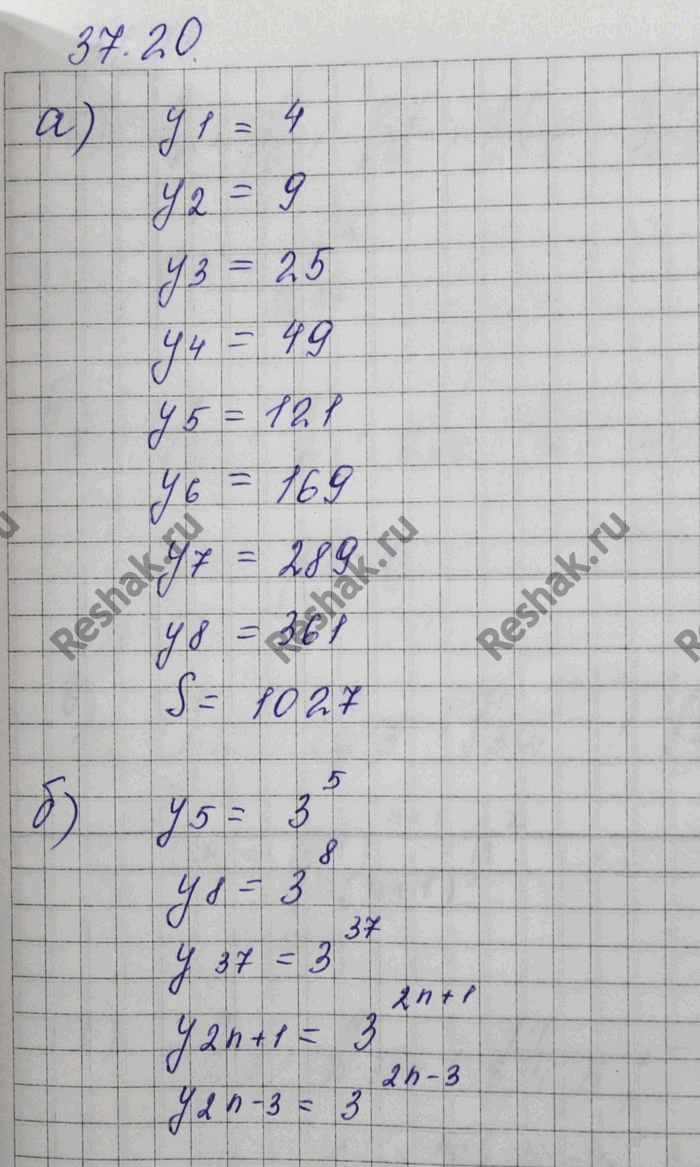 37.20.
а) y1 = 4
y2 = 9
y3 = 25
y4 = 49
y5 = 121
y6 = 169
y7 = 289
y8 = 361
S = 1027
б) y5 = 3^5
y8 = 3^8
y37 = 3^37
y2n+1 = 3^2n+1
y2n-3 = 3^2n-3
Reshak.ru
Reshak.ru
Reshak.ru